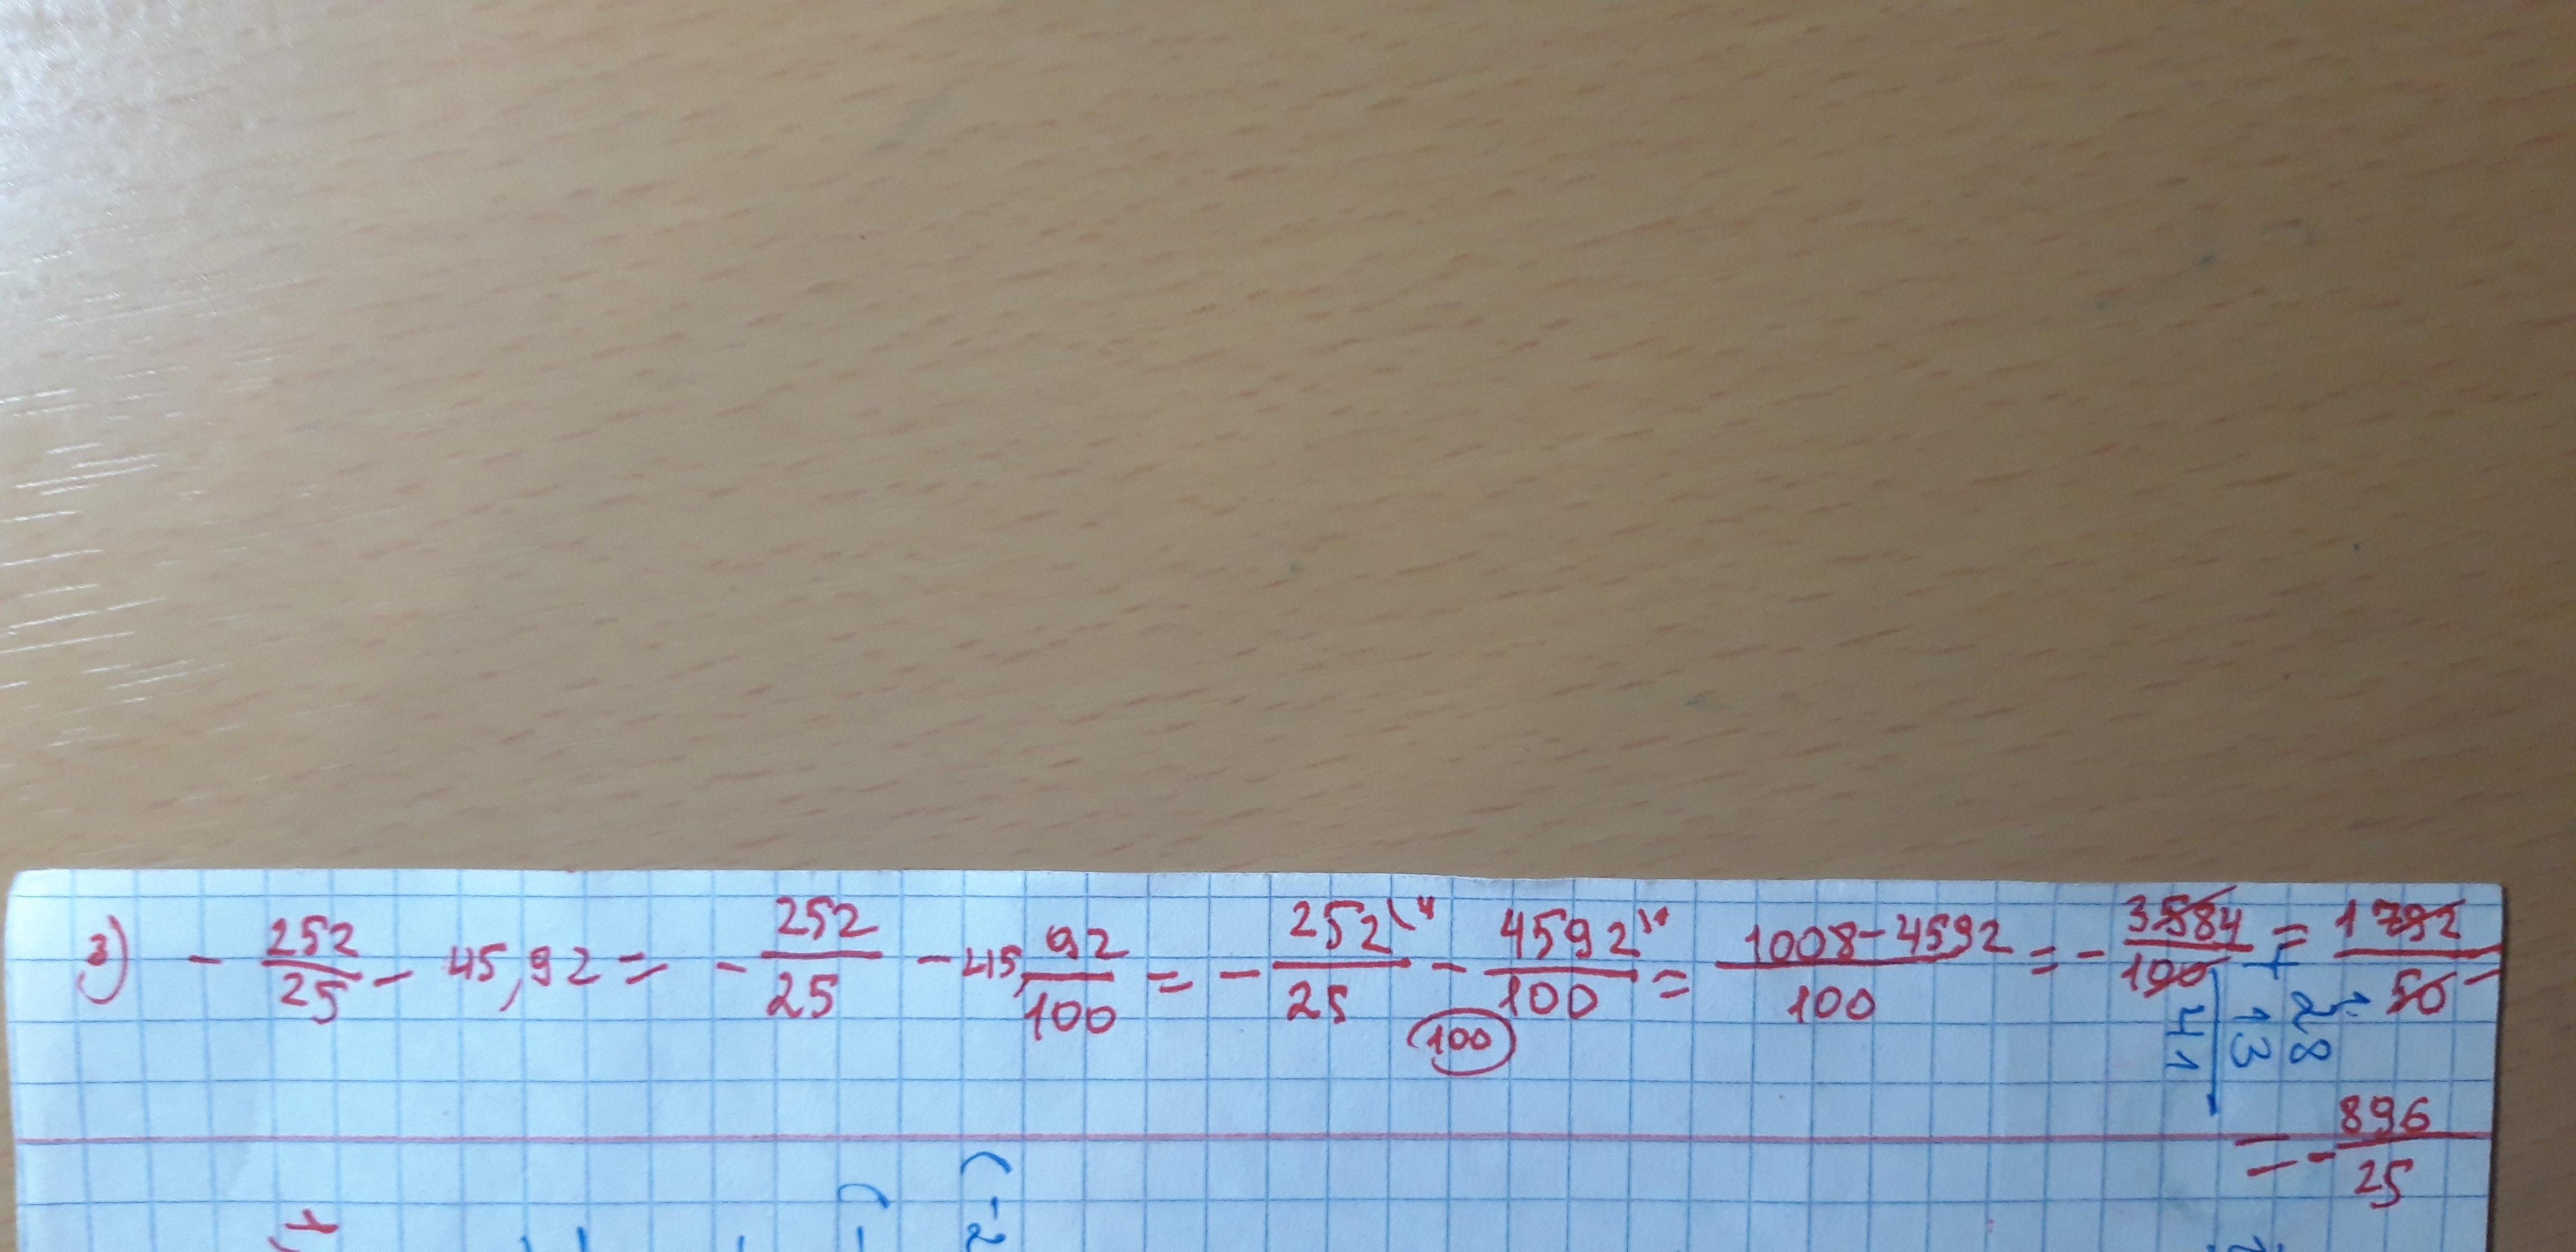 3) - 252/25 - 45,92 = - 252/25 - 45 92/100 = - 252\4/25 - 4592\1/100 = 1008-4592/100 = - 3584/100 = 1792/50 =
100
= - 896/25
+ 28
13
41
(-2
(-